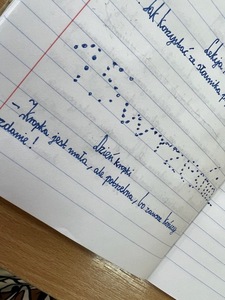 Lekcja
Jak korzystać ze słownika
Dzień kropki
– Kropka jest mała, ale potrzebna, bo zawsze kończy
zdanie!